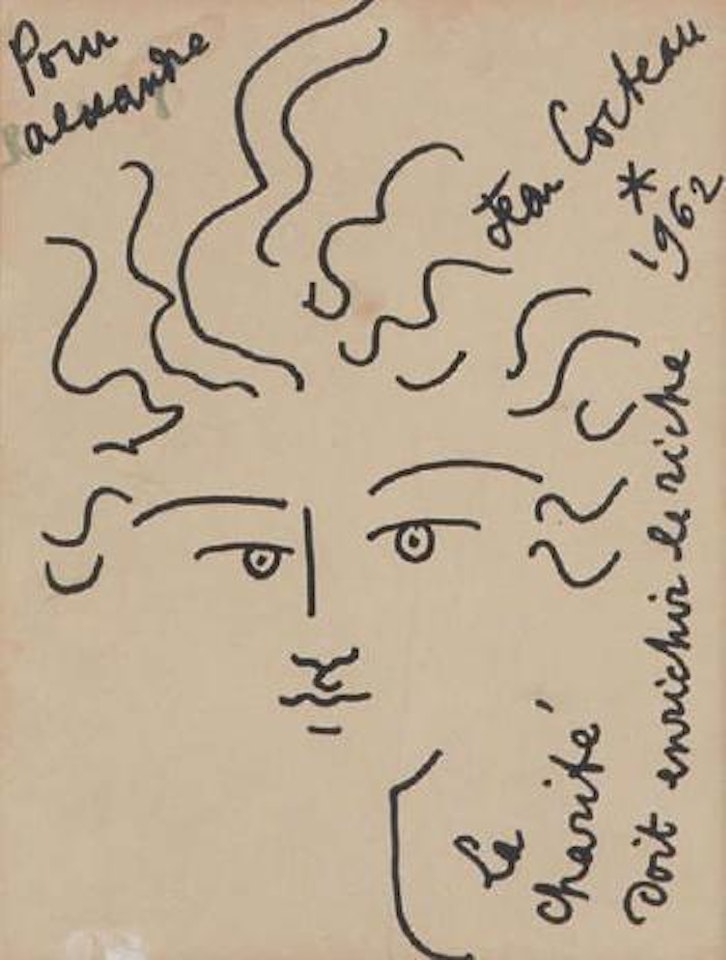 Pour
alexandre
Jean Cocteau
*
1962
La
charité
doit enrichir le riche